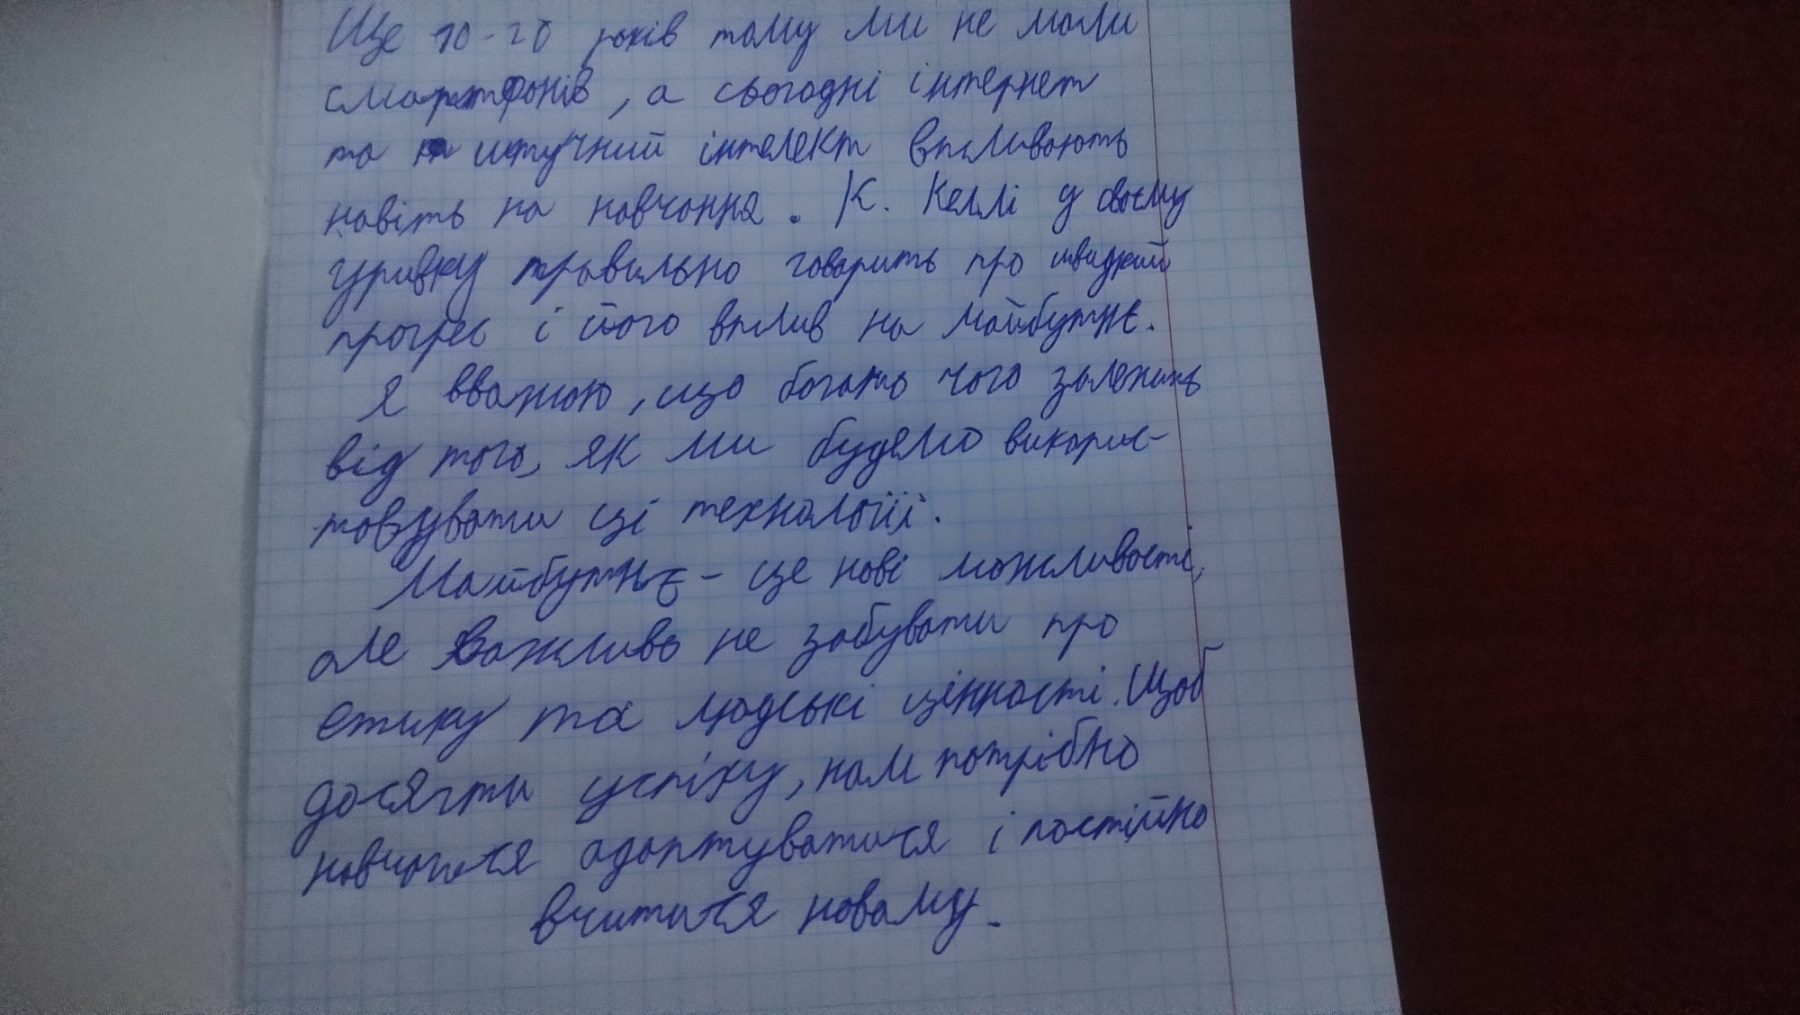 Ще 10-20 років тому ми не мали
смартфонів, а сьогодні інтернет
та штучний інтелект впливають
навіть на навчання. К. Келлі у своєму
уривку правильно говорить про швидкий
прогрес і його вплив на майбутнє.
Я вважаю, що багато чого залежить
від того, як ми будемо викорис-
товувати ці технології.
Майбутнє - це нові можливості,
але важливо не забувати про
етику та людські цінності. Щоб
досягти успіху, нам потрібно
навчатися адаптуватися і постійно
вчитися новому.